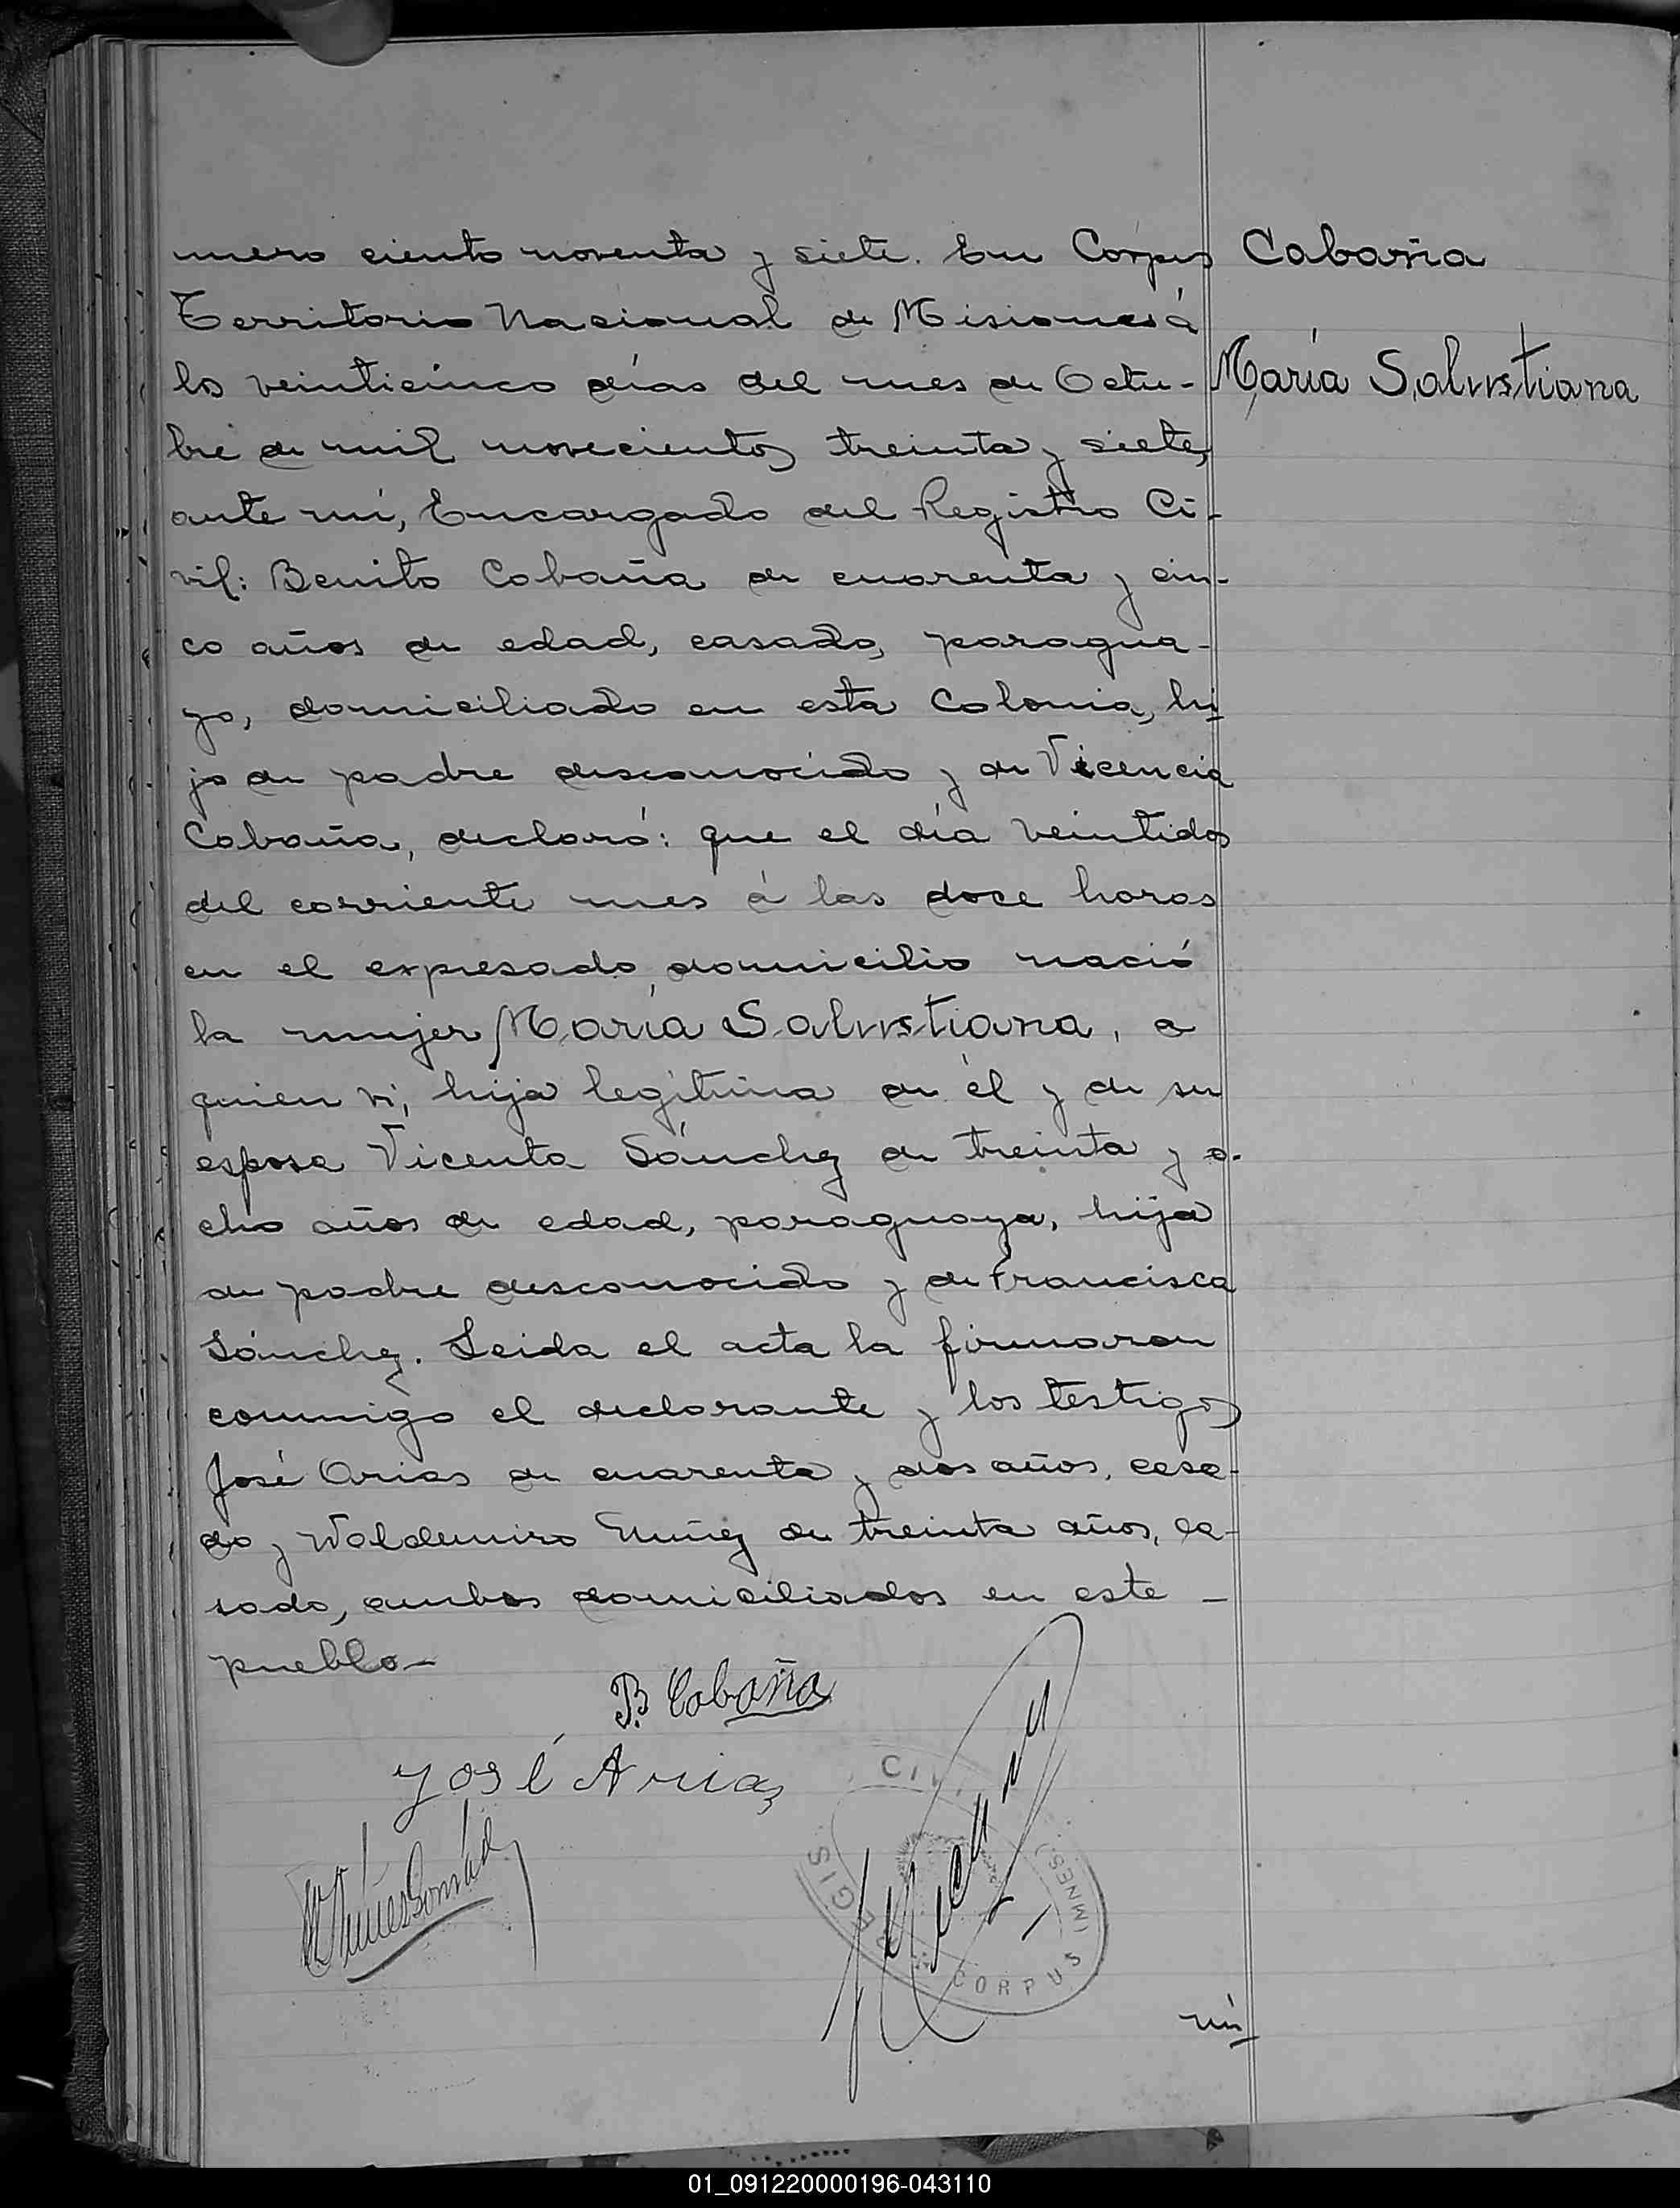 mero ciento noventa y siete. En Corpus
Cabaña
Territorio Nacional de Misiones á
los veinticinco días del mes de Octu-
María Salustiana
bre de mil novecientos treinta y siete,
ante mí, Encargado del Registro Ci-
vil: Benito Cabaña de cuarenta y cin-
co años de edad, casado, paragua-
yo, domiciliado en esta Colonia, hi
jo de padre desconocido y de Vicencia
Cabaña, declaró: que el día veintidos
del corriente mes á las doce horas
en el expresado domicilio nació
la mujer María Salustiana, a
quien ví, hija legítima de él y de su
esposa Vicenta Sánchez de treinta y o-
cho años de edad, paraguaya, hija
de padre desconocido y de Francisca
Sánchez. Leida el acta la firmaron
conmigo el declarante y los testigos
José Arias de cuarenta y dos años, casa-
do y Waldemiro Nuñez de treinta años, ca-
sado, ambos domiciliados en este -
pueblo-
B. Cabaña
José Arias
CIVIL
REGIS
CORPUS
(MNES)
nú
01_091220000196-043110